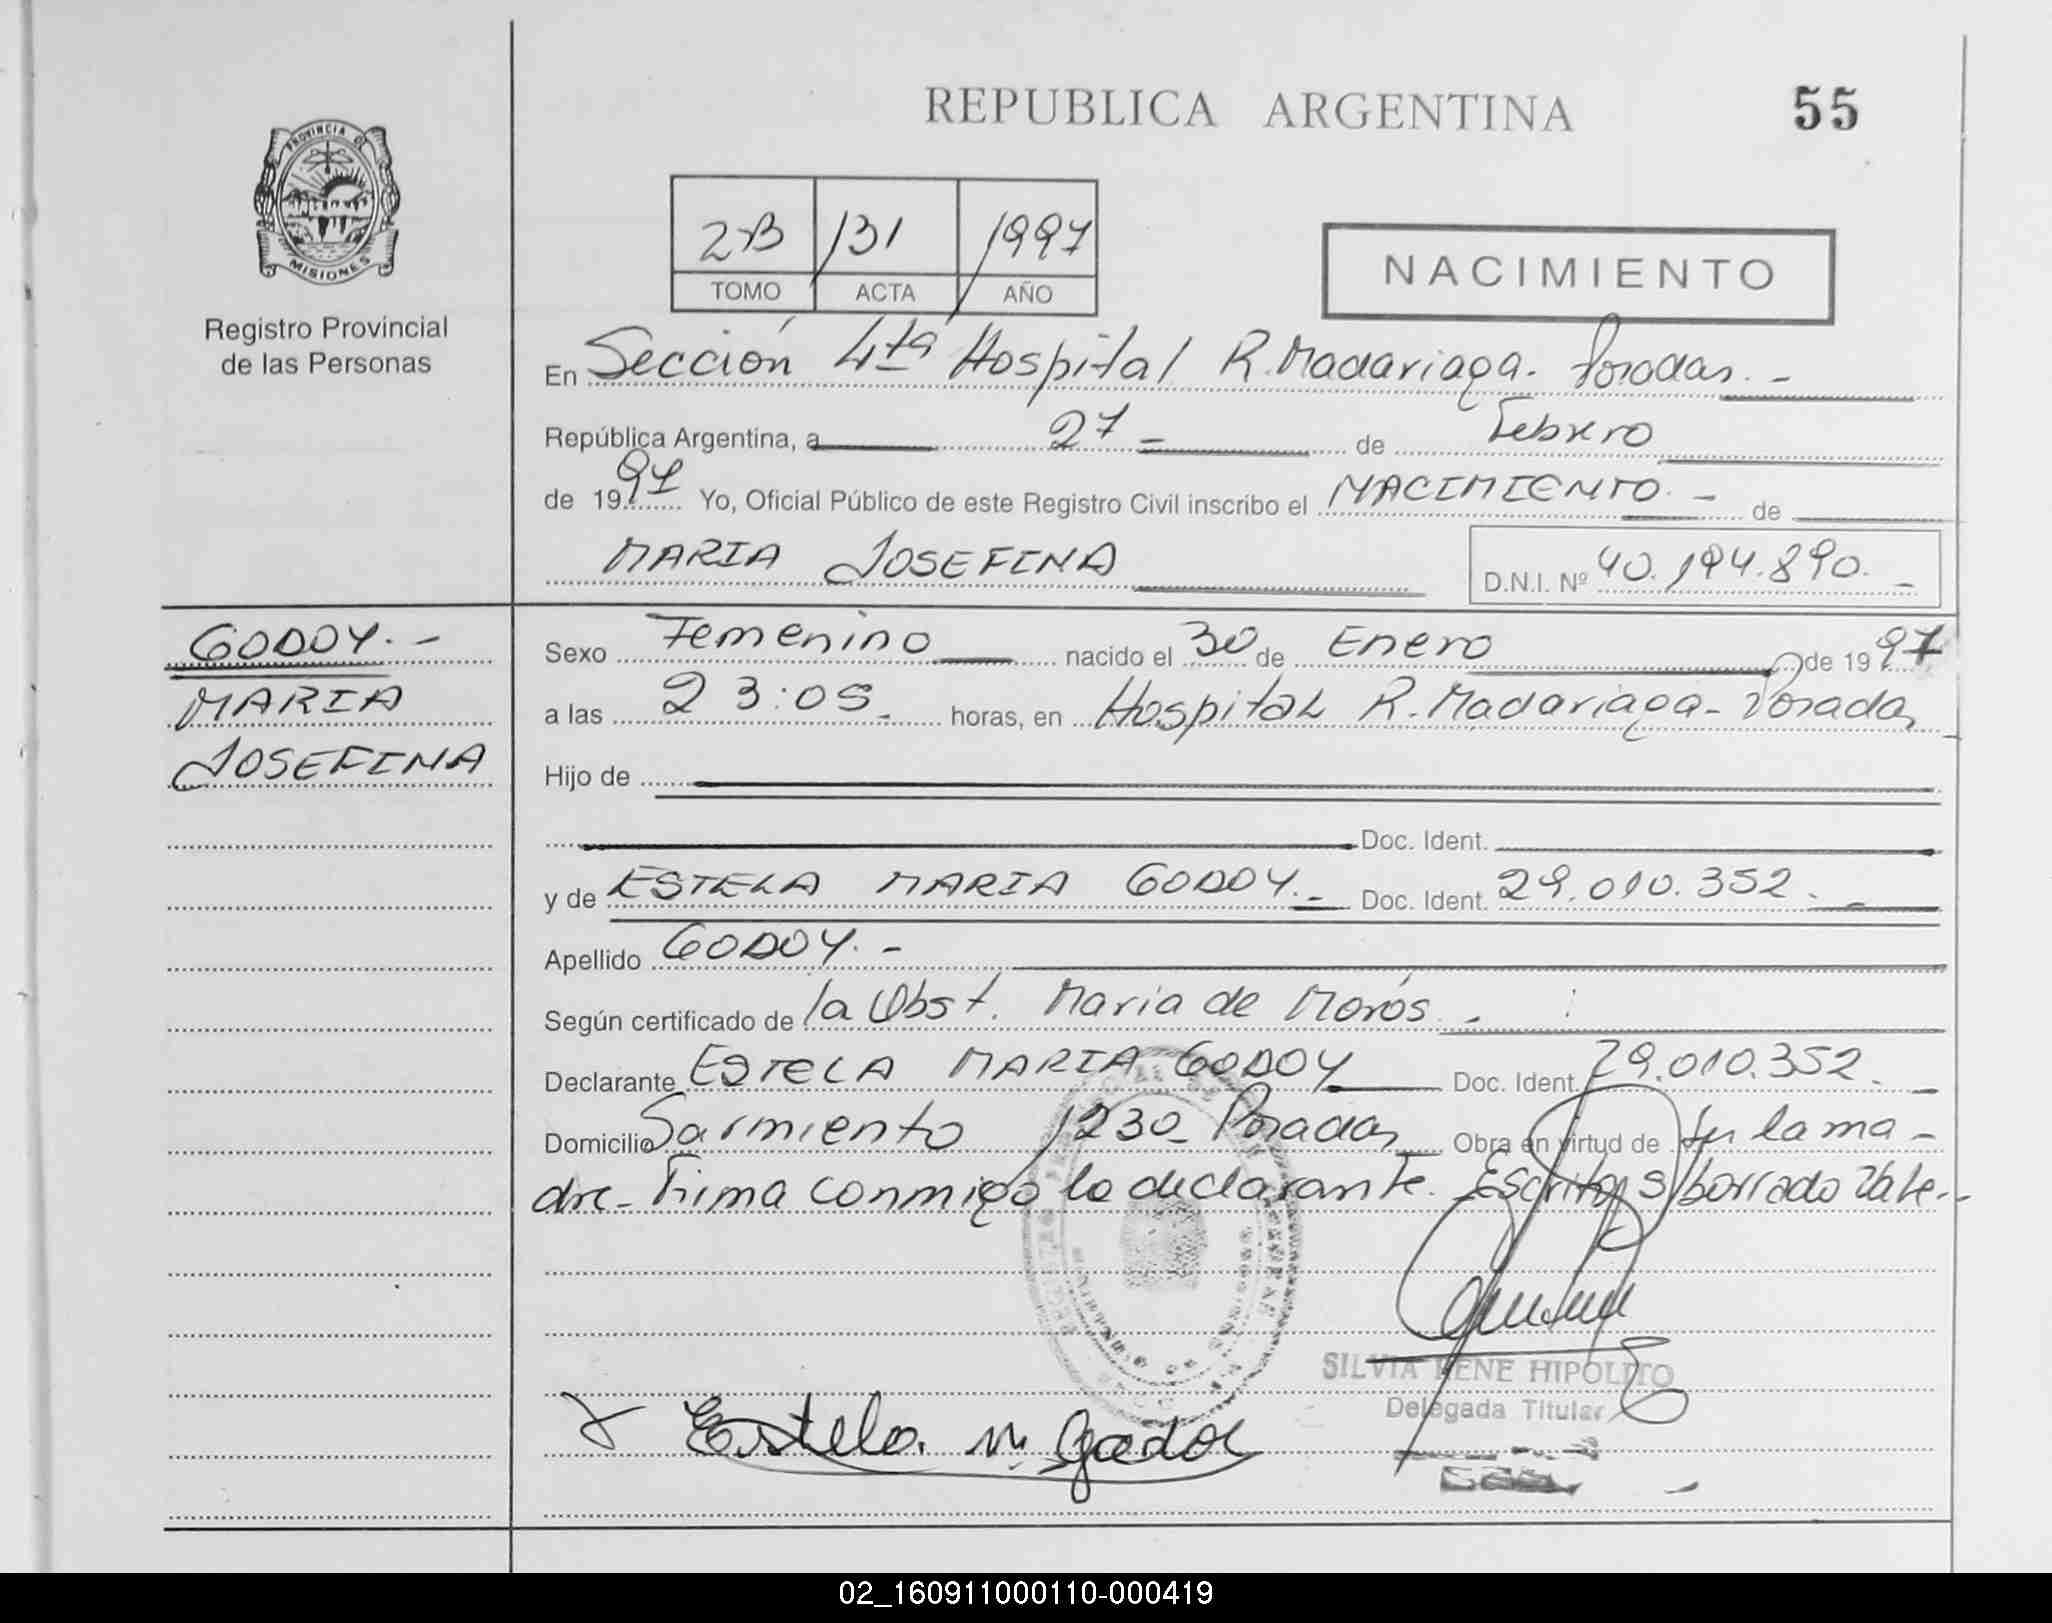 REPUBLICA ARGENTINA
55
PROVINCIA DE MISIONES
Registro Provincial
de las Personas
2B 131 1997
TOMO ACTA AÑO
NACIMIENTO
En Sección 4ta Hospital R. Madariaga. Posadas. -
República Argentina, a 27 - de Febrero
de 1997 Yo, Oficial Público de este Registro Civil inscribo el NACIMIENTO. - de
MARIA JOSEFINA D.N.I. Nº 40.194.890. -
GODOY. -
MARIA
JOSEFINA
Sexo Femenino nacido el 30 de Enero de 1997
a las 23:05 - horas, en Hospital R. Madariaga - Posadas
Hijo de
Doc. Ident.
y de ESTELA MARIA GODOY. - Doc. Ident. 29.010.352. -
Apellido GODOY. -
Según certificado de la Obst. Maria de Morós. -
Declarante ESTELA MARIA GODOY Doc. Ident. 29.010.352. -
Domicilio Sarmiento 1230 - Posadas Obra en virtud de ser la ma -
dre - Firma conmigo la declarante. Escritos s/borrado Vale. -
SILVIA RENE HIPOLITO
Delegada Titular
Estela M. Godoy
02_160911000110-000419